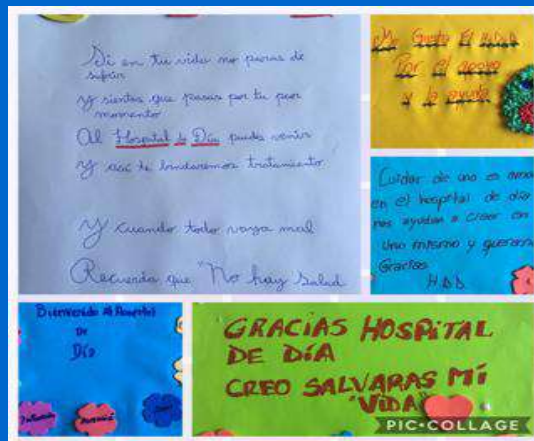 Si en tu vida no paras de
sufrir
Y sientes que pasas por tu peor
momento
Al Hospital de Día puedes venir
Y acá te brindaremos tratamiento
Y cuando todo vaya mal
Recuerda que "No hay Salud
Me Gusta El H.D.D
Por el apoyo
y la ayuda
Cuidar de uno es amor
en el hospital de día
nos ayudan a creer en
uno mismo y querernos
Gracias
H.D.D
Bienvenido al Hospital
De
Día
GRACIAS HOSPITAL
DE DÍA
CREO SALVARAS MÍ
"VIDA"
PIC•COLLAGE